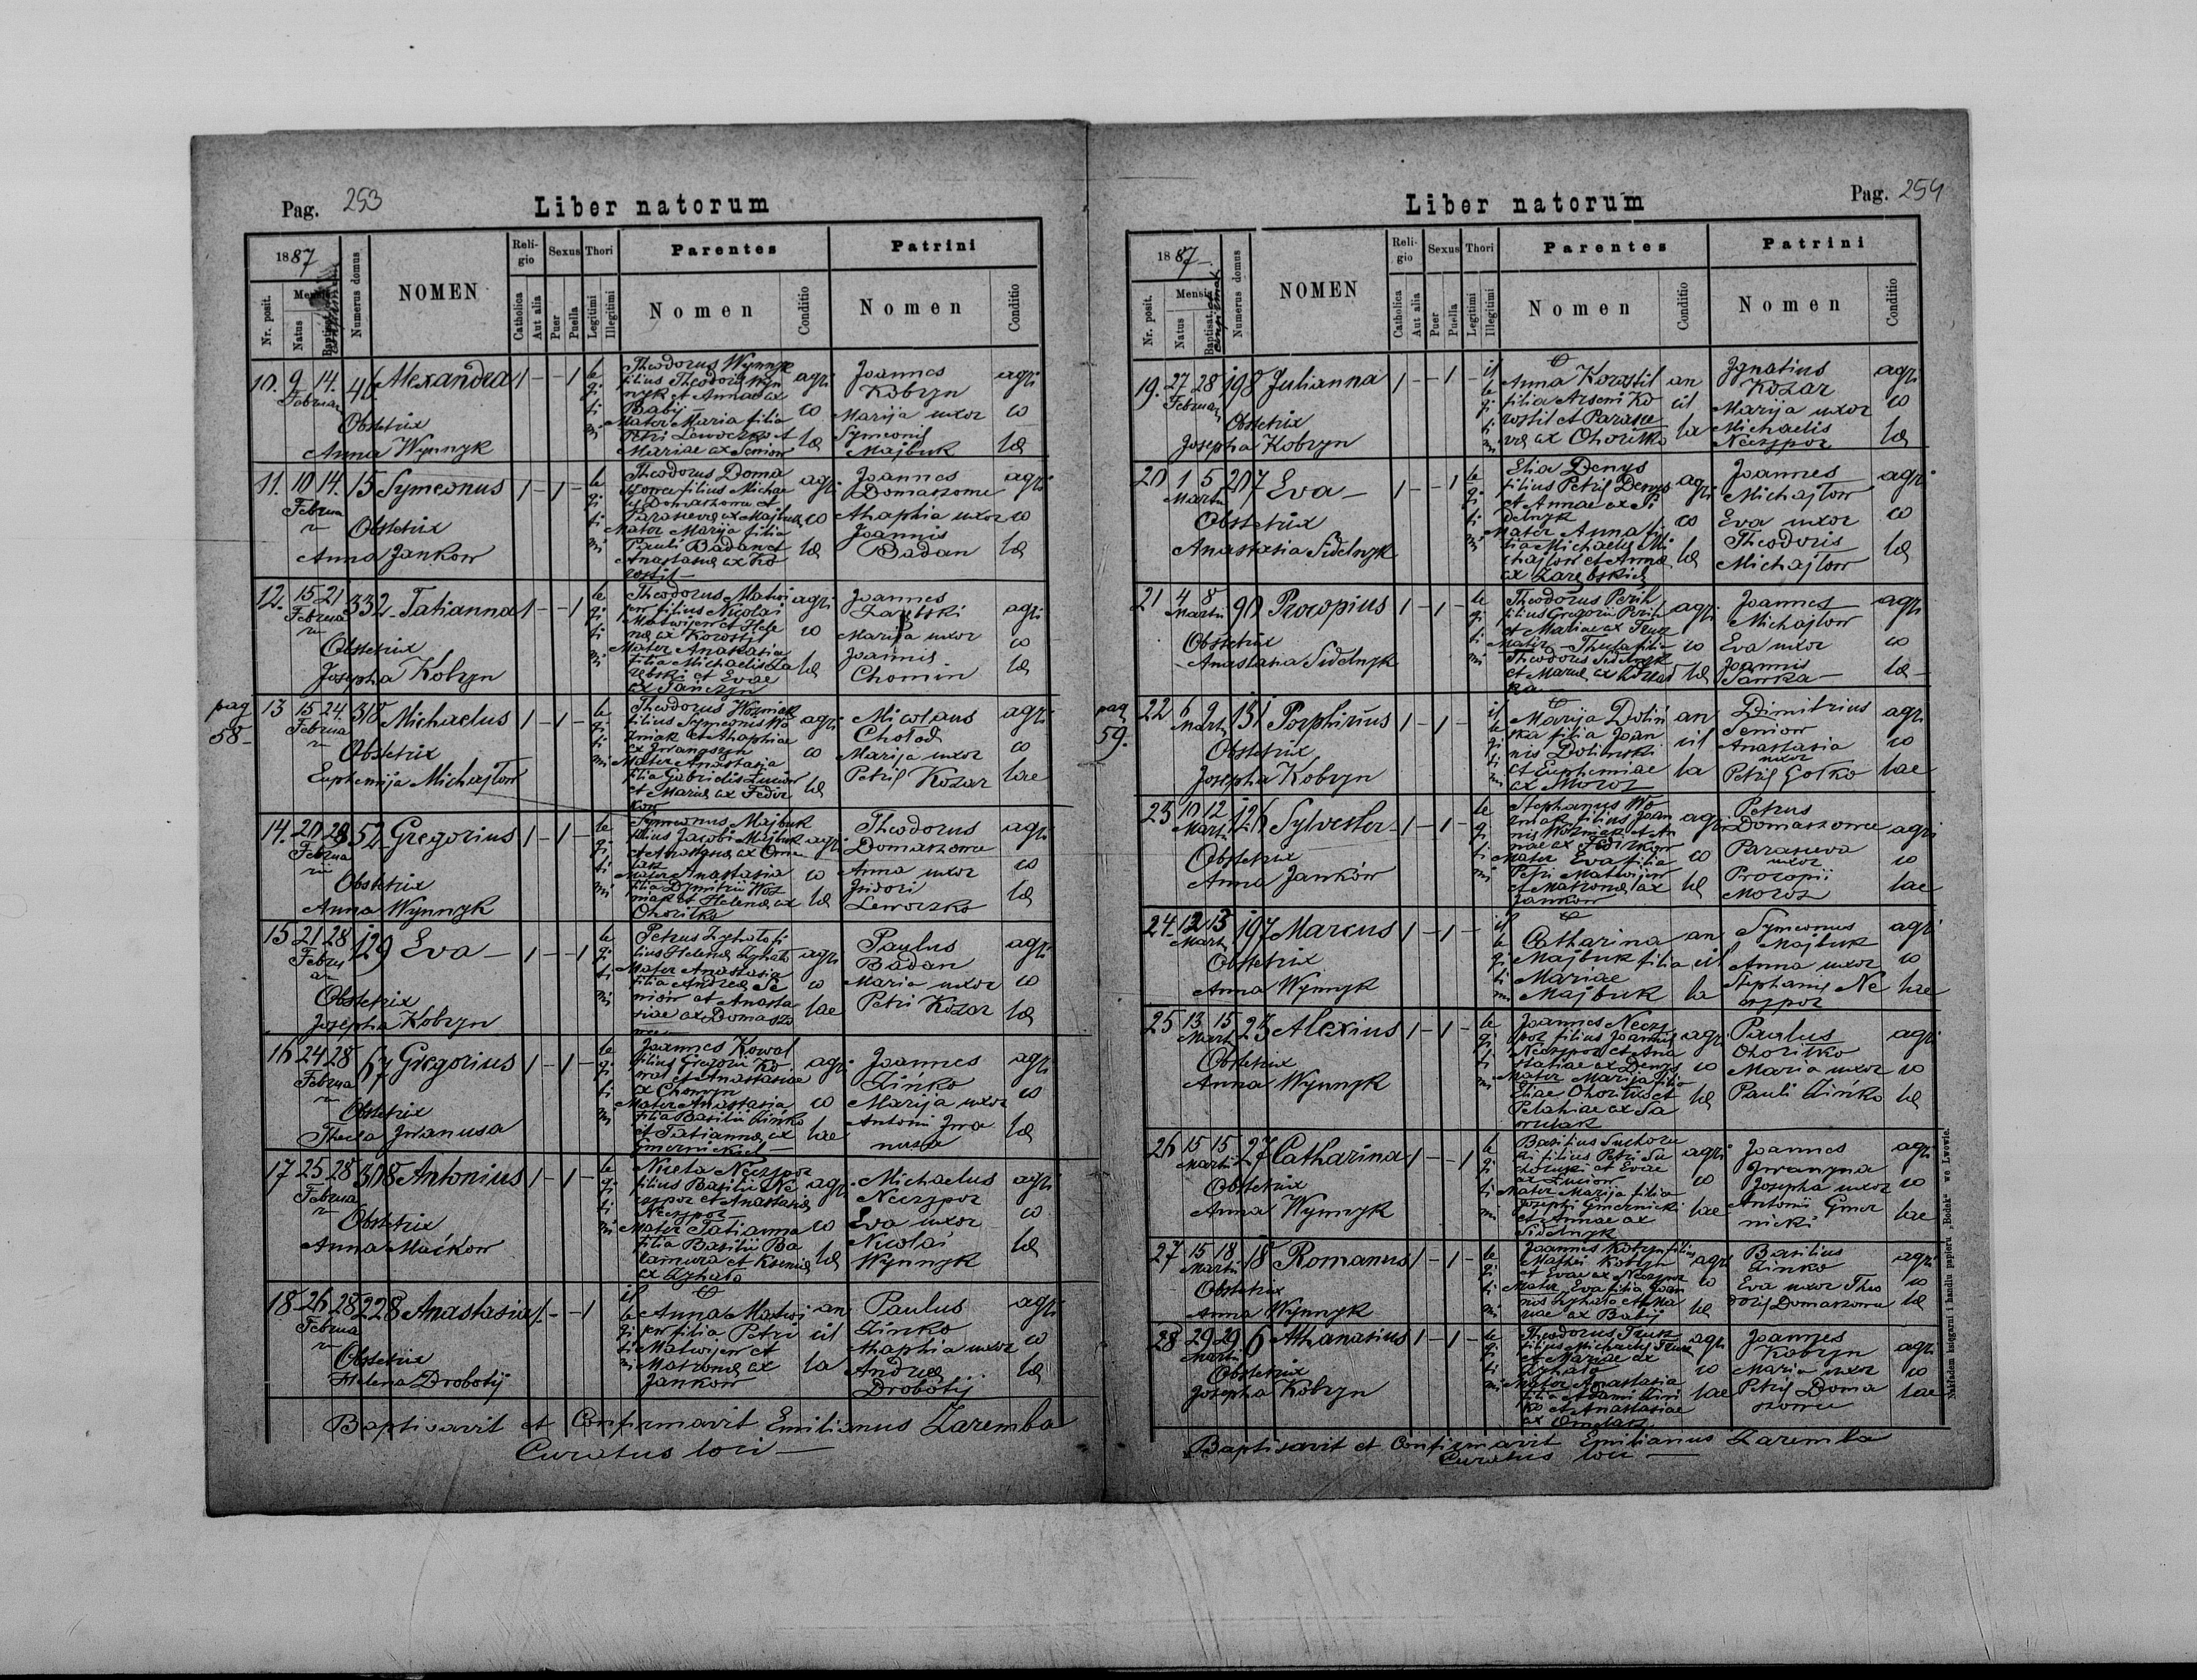 Pag. 253
Liber natorum
1887
Nr. posit.
Mensis
Natus
Baptisat.
Numerus domus
NOMEN
Religio
Catholica
Aut alia
Sexus
Puer
Puella
Thori
Legitimi
Illegitimi
Parentes
Nomen
Conditio
Patrini
Nomen
Conditio
10. 9 14. 46 Alexandra 1 - - 1
Februar
Obstetrix
Anna Wynnyk
legitimi
Theodorus Wynnyk
filius Theodori Wyn
nyk et Annae ex
Babij
Mater Maria filia
Petri Leworzko et
Mariae ex Senior
agri
co
lae
Joannes
Kobryn
Marija uxor
Symeonis
Majbuk
agri
co
lae
11. 10 14. 15 Symeonus 1 - 1 -
Februa
r
Obstetrix
Anna Jankow
legitimi
Theodorus Doma
szowee filius Michae
lis Domaszowee et
Parasevae ex Majbuk
Mater Marija filia
Pauli Badan et
Anastasiae ex Ko
rostil
agri
co
lae
Joannes
Domaszowee
Ahaphia uxor
Joannis
Badan
agri
co
lae
12. 15 21 332 Tatianna 1 - - 1
Februa
r
Obstetrix
Josepha Kobryn
legitimi
Theodorus Matwi
jew filius Nicolai
Matwijew et Hele
nae ex Korostil
Mater Anastasia
filia Michaelis Za
rębski et Evae
ex Tanczyn
agri
co
lae
Joannes
Zarębski
Marija uxor
Joannis
Chomin
agri
co
lae
pag
58
13 15 24. 318 Michaelus 1 - 1 -
Februa
r
Obstetrix
Euphemija Michajłow
legitimi
Theodorus Wozniak
filius Symeonis Wo
zniak et Ahaphiae
ex Jwanoszyn
Mater Anastasia
filia Gabrielis Luciow
et Mariae ex Fedir
kow
agri
co
lae
Nicolaus
Chołod
Marija uxor
Petri Kozar
agri
co
lae
14. 20 28 52 Gregorius 1 - 1 -
Februa
r
Obstetrix
Anna Wynnyk
legitimi
Symeonus Majbuk
filius Jacobi Majbuk
et Anastasiae ex Ome
lan
Mater Anastasia
filia Dymitrii Woz
niak et Helenae ex
Ohorilko
agri
co
lae
Theodorus
Domaszowee
Anna uxor
Jsidori
Leworzko
agri
co
lae
15 21 28 129 Eva - 1 - - 1
Febru
ar
Obstetrix
Josepha Kobryn
legitimi
Petrus Zyhało fi
lius Helenae Zyhało
Mater Anastasia
filia Andreae Se
niów et Anasta
siae ex Domaszo
wee
agri
co
lae
Paulus
Badan
Maria uxor
Petri Kozar
agri
co
lae
16 24 28 67 Gregorius 1 - 1 -
Februa
r
Obstetrix
Thecla Jwanusa
legitimi
Joannes Kowal
filius Gregorii Ko
wal et Anastasiae
ex Chomyn
Mater Anastasia
filia Basilii Zinko
et Tatiannae ex
Gmernickich
agri
co
lae
Joannes
Zinko
Marija uxor
Antonii Jwa
nusa
agri
co
lae
17 25 28 308 Antonius 1 - 1 -
Februa
r
Obstetrix
Anna Maćkow
legitimi
Niceta Neczypor
filius Basilii Ne
czypor et Anastasiae
Neczypor
Mater Tatianna
filia Basilii Ba
lamuta et Kseniae
ex Zyhało
agri
co
lae
Michaelus
Neczypor
Eva uxor
Nicolai
Wynnyk
agri
co
lae
18 26 28 228 Anastasia 1 - - 1
Februa
r
Obstetrix
Helena Drobotij
illegitimi
Anna Matwi
jew filia Petri
Matwijew et
Matronae ex
Jankow
an
cil
la
Paulus
Zinko
Ahaphia uxor
Andreae
Drobotij
agri
co
lae
Baptisavit et Confirmavit Emilianus Zaremba
Curatus loci
Pag. 254
Liber natorum
1887
Nr. posit.
Mensis
Natus
Baptisat. et
Numerus domus
NOMEN
Religio
Catholica
Aut alia
Sexus
Puer
Puella
Thori
Legitimi
Illegitimi
Parentes
Nomen
Conditio
Patrini
Nomen
Conditio
19. 27 28 198 Julianna 1 - - 1 -
Februar
Obstetrix
Josepha Kobryn
illegitimi
Anna Korostil
filia Arseni Ko
rostil et Paraske
vae ex Ohorilko
an
cil
la
Jgnatius
Kozar
Marija uxor
Michaelis
Neczypor
agri
co
lae
20 1 5 207 Eva - 1 - - 1
Martii
Obstetrix
Anastasia Sidelnyk
legitimi
Elia Denys
filius Petri Denys
et Annae ex Si
delnyk
Mater Anna fi
lia Michaelis Mi
chajłow et Annae
ex Zarębskich
agri
co
lae
Joannes
Michajłow
Eva uxor
Theodoris
Michajłow
agri
co
lae
21 4 8 90 Procopius 1 - 1 -
Martii
Obstetrix
Anastasia Sidelnyk
legitimi
Theodorus Perih
filius Gregorii Perih
et Mariae ex Trusz
Mater Thecla filia
Theodoris Sidelnyk
et Mariae ex
agri
co
lae
Joannes
Michajłow
Eva uxor
Joannis
Sawka
agri
co
lae
pag
59.
22 6 9 131 Porphirius 1 - 1 -
Mart
Obstetrix
Josepha Kobryn
illegitimi
Marija Doliń
ska filia Joan
nis Dolinski
et Euphemiae
ex Moroz
an
cil
la
Dimitrius
Senior
Anastasia
uxor
Petri Gołko
agri
co
lae
23 10 12 126 Sylvester 1 - 1 -
Mart
Obstetrix
Anna Janków
legitimi
Stephanus Wo
zniak filius Joan
nis Wozniak et An
nae ex Fedirkow
Mater Eva filia
Petri Matwijew
et Matronae ex
Jankow
agri
co
lae
Petrus
Domaszowee
Parasceva
uxor
Procopii
Moroz
agri
co
lae
24. 12 15 197 Marcus 1 - 1 -
Mart
Obstetrix
Anna Wynnyk
illegitimi
Catharina
Majbuk filia
Mariae
Majbuk
an
cil
la
Symeonus
Majbuk
Anna uxor
Stephani Ne
czypor
agri
co
lae
25 13 15 23 Alexius 1 - 1 -
Mart
Obstetrix
Anna Wynnyk
legitimi
Joannes Neczy
por filius Joannis
Neczypor et Ana
stasiae ex Denys
Mater Marija filia
Eliae Ohorilko et
Pelahiae ex Sa
wczak
agri
co
lae
Paulus
Ohorilko
Maria uxor
Pauli Zińko
agri
co
lae
26 15 15 27 Catharina 1 - - 1
Martii
Obstetrix
Anna Wynnyk
legitimi
Basilius Suchoru
ki filius Petri Su
choruki et Evae
ex Luciow
Mater Marija filia
Josephi Gmernicki
et Annae ex
Sidelnyk
agri
co
lae
Joannes
Jwanyna
Josepha uxor
Antonii Gmer
nicki
agri
co
lae
27 15 18 18 Romanus 1 - 1 -
Martii
Obstetrix
Anna Wynnyk
legitimi
Joannes Kobryn filius
Mathei Kobryn
et Evae ex Neczypor
Mater Eva filia Joan
nis Zyhało et Ma
riae ex Babij
agri
co
lae
Basilius
Zinko
Eva uxor Theo
doris Domaszowee
agri
co
lae
28 29 29 6 Athanasius 1 - 1 -
Martii
Obstetrix
Josepha Kobryn
legitimi
Theodorus Trusz
filius Michaelis Trusz
et Mariae ex
Zyhało
Mater Anastasia
filia Adami Zin
ko et Anastasiae
ex Omelan
agri
co
lae
Joannes
Kobryn
Maria uxor
Petri Doma
szowee
agri
co
lae
Baptisavit et Confirmavit Emilianus Zaremba
Curatus loci
Nakładem księgarni i handlu papieru „Bodek" we Lwowie.